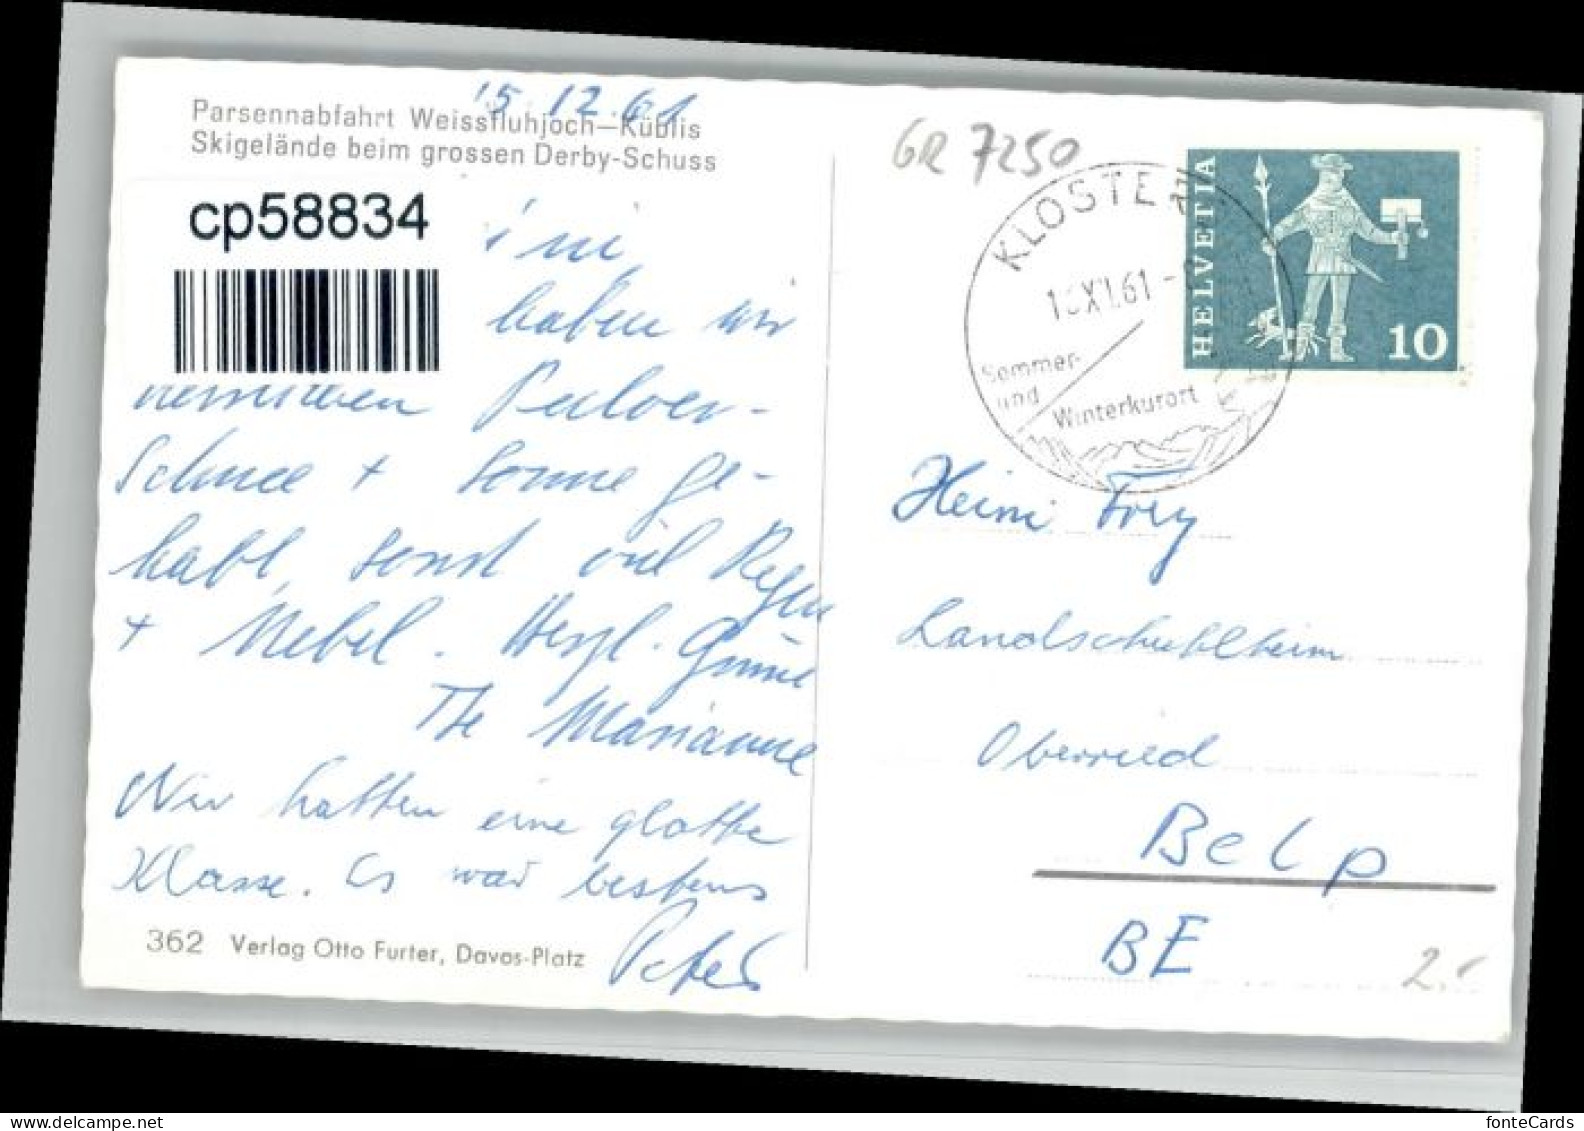 15.12.61
Parsennabfahrt Weissfluhjoch—Küblis
Skigelände beim grossen Derby-Schuss
cp58834
haben wir
Pulver-
Schnee + Sonne ge-
habt, sonst viel Regen
+ Nebel. Herzl. Grüsse
Marianne
Wir hatten eine glatte
Klasse. Es war bestens
Peter
362 Verlag Otto Furter, Davos-Platz
GR 7250
KLOSTERS
XI.61
Sommer-
und
Winterkurort
HELVETIA
10
Heini Frey
Landschulheim
Oberried
Belp
BE
2.-
delcampe.net
fonteCards